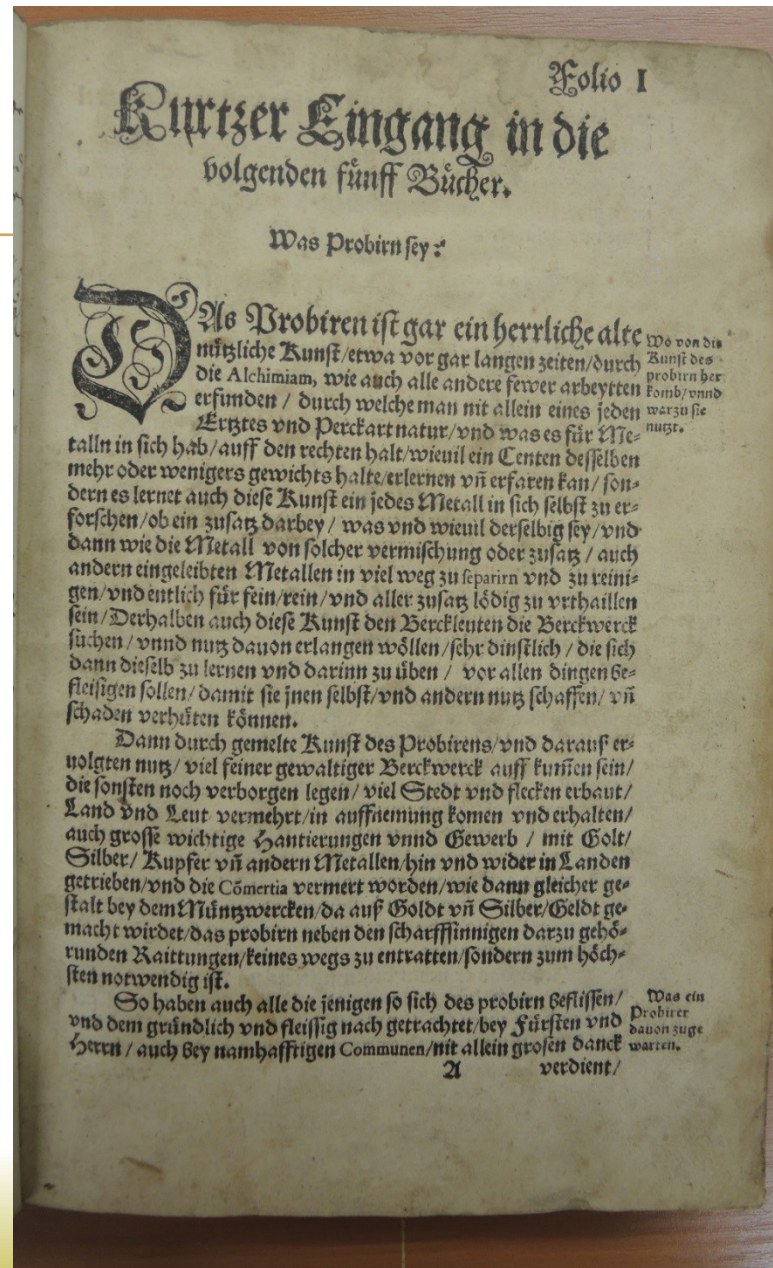 Folio I
Kurtzer Eingang in die
volgenden fünff Bücher.
Was Probirn sey:
DAs Probiren ist gar ein herrliche alte
nützliche Kunst/etwa vor gar langen zeiten/durch
die Alchimiam, wie auch alle andere fewer arbeytten
erfunden / durch welche man nit allein eines jeden
Ertztes vnd Perckart natur/vnd was es für Me=
talln in sich hab/auff den rechten halt/wieuil ein Centen desselben
mehr oder wenigers gewichts halte/erlernen vñ erfaren kan/ son=
dern es lernet auch diese Kunst ein jedes Metall in sich selbst zu er=
forschen/ob ein zusatz darbey / was vnd wieuil derselbig sey/vnd
dann wie die Metall von solcher vermischung oder zusatz / auch
andern eingeleibten Metallen in viel weg zu separirn vnd zu reini=
gen/vnd entlich für fein/rein/vnd aller zusatz lödig zu vrthaillen
sein/Derhalben auch diese Kunst den Berckleuten die Berckwerck
suchen / vnnd nutz dauon erlangen wöllen/sehr dinstlich / die sich
dann dieselb zu lernen vnd darinn zu üben / vor allen dingen be=
fleisigen sollen/damit sie jnen selbst/vnd andern nutz schaffen/ vñ
schaden verhüten können.
Dann durch gemelte Kunst des Probirens/vnd darauß er=
uolgten nutz/ viel feiner gewaltiger Berckwerck auff kumēn sein/
die sonsten noch verborgen legen/ viel Stedt vnd flecken erbaut/
Land vnd Leut vermehrt/in auffnemung komen vnd erhalten/
auch grosse wichtige Hantierungen vnnd Gewerb / mit Golt/
Silber/ Kupfer vñ andern Metallen/hin vnd wider in Landen
getrieben/vnd die Cōmertia vermert worden/wie dann gleicher ge=
stalt bey dem Müntzwercken/da auß Goldt vñ Silber/Geldt ge=
macht wirdet/das probirn neben den scharffsinnigen darzu gehö=
runden Raittungen/keines wegs zu entratten/sondern zum höch=
sten notwendig ist.
So haben auch alle die jenigen so sich des probirn beflissen/
vnd dem gründlich vnd fleissig nach getrachtet/bey Fürsten vnd
Herrn / auch bey namhafftigen Communen/nit allein grosen danck
A verdient/
Wo von die
Kunst des
probirn her
komb/vnnd
warzu sie
nutzt.
Was ein
Probirer
dauon zuge
warten.